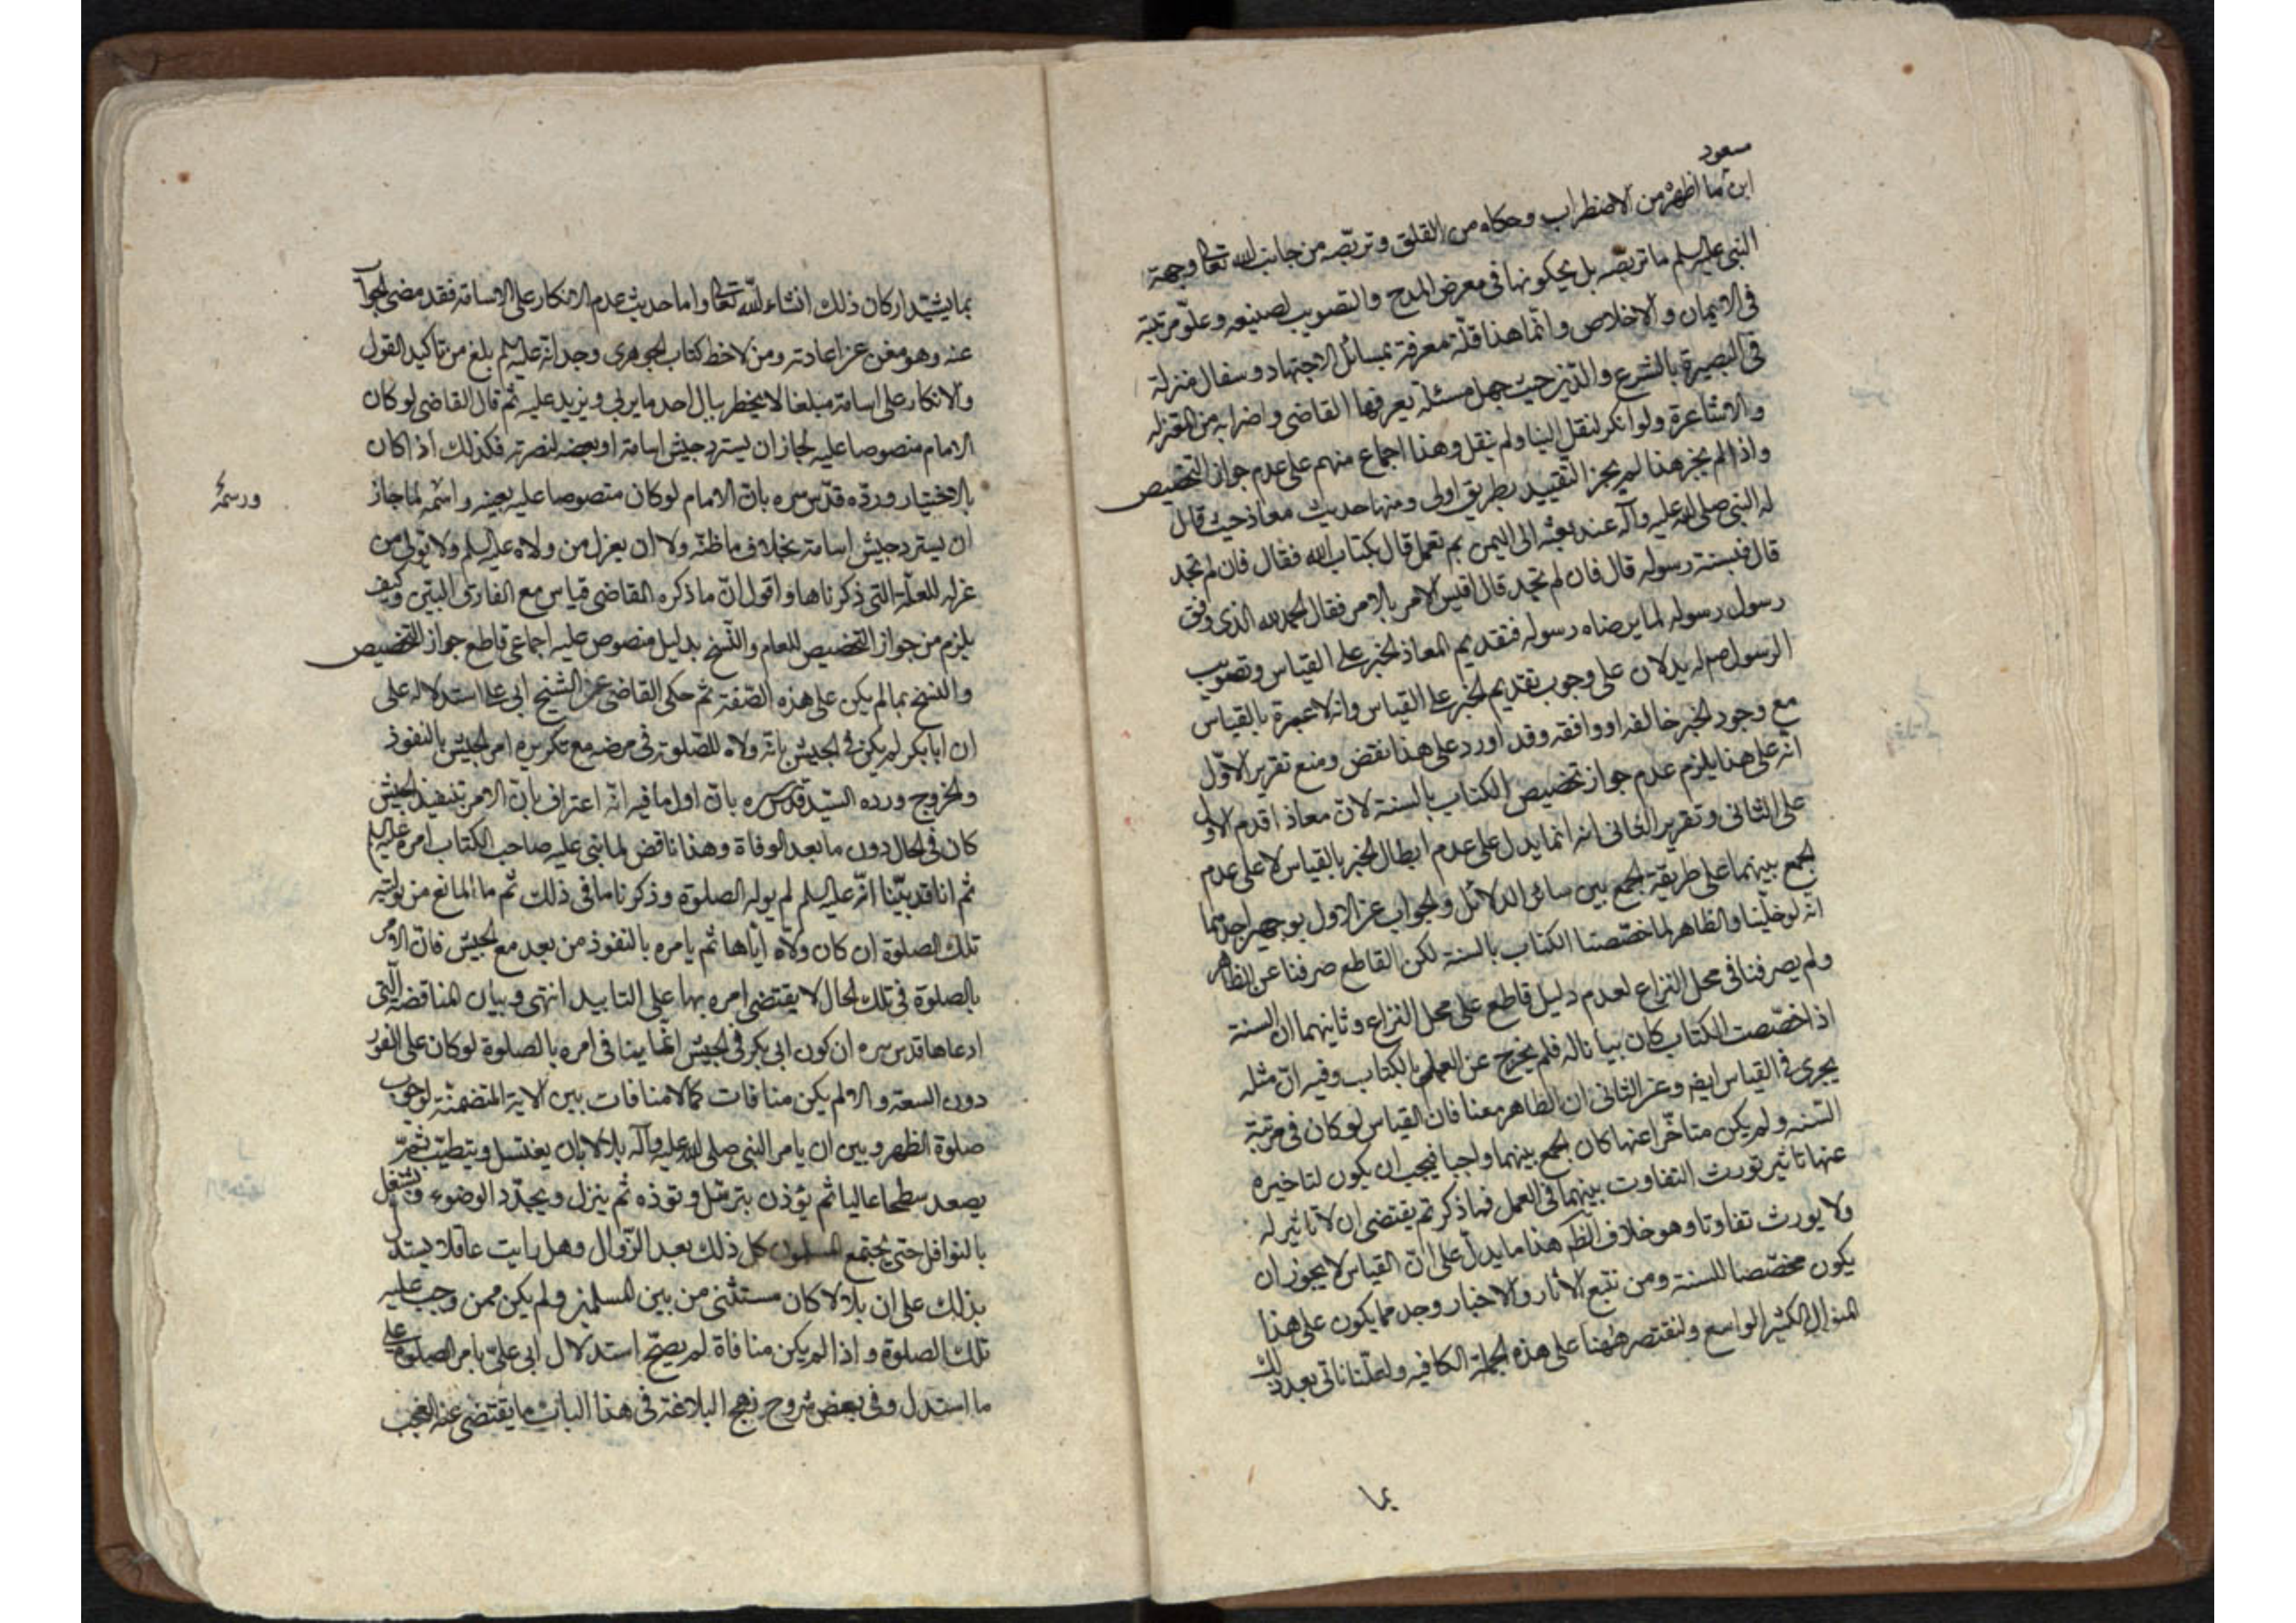 مسعود
ابن ما اظهره من الاضطراب وحكاه من القلق وتربصه من جانب الله تعالى وجهة
النبي عليه السلم ما تربصه بل يحكونها في معرض المدح والتصويب لصنيعه وعلو مرتبته
في الايمان والاخلاص وانما هذا قلة معرفة بمسائل الاجتهاد وسفال منزلة
في البصيرة بالشرع والدين حيث جهل مسئلة يعرفها القاضي واضرابه من المعتزلة
والاشاعرة ولو انكر لنقل الينا ولم ينقل وهذا اجماع منهم على عدم جواز التخصيص
واذا لم يجز هذا لم يجز التقييد بطريق اولى ومنها حديث معاذ حيث قال
له النبي صلى الله عليه وآله عند بعثه الى اليمن بم تعمل قال بكتاب الله فقال فان لم تجد
قال فبسنة رسوله قال فان لم تجد قال اقيس الامر بالامر فقال الحمد لله الذي وفق
رسول رسوله لما يرضاه رسوله فتقديم المعاذ الخبر على القياس وتصويب
الرسول صم له يدلان على وجوب تقديم الخبر على القياس وانه لا عبرة بالقياس
مع وجود الخبر خالفه او وافقه وقد اورد على هذا نقض ومنع تقرير الاول
انه على هذا يلزم عدم جواز تخصيص الكتاب بالسنة لان معاذ اقدم الاول
على الثاني وتقرير الثاني انه انما يدل على عدم ابطال الخبر بالقياس لا على عدم
الجمع بينهما على طريقة الجمع بين سائر الدلائل والجواب عن الاول بوجهين احدهما
انه لو خلينا والظاهر لما خصصنا الكتاب بالسنة لكن القاطع صرفنا عن الظاهر
ولم يصرفنا في محل النزاع لعدم دليل قاطع على محل النزاع وثانيهما ان السنة
اذا خصصت الكتاب كان بيانا له فلم يخرج عن العمل بالكتاب وفيه ان مثله
يجرى في القياس ايضا وعن الثاني ان الظاهر معنا فان القياس لو كان في مرتبة
السنة ولم يكن متاخرا عنها كان الجمع بينهما واجبا فيجب ان يكون لتاخيره
عنها تاثير تورث التفاوت بينهما في العمل فما ذكرتم يقتضي ان لا تاثير له
ولا يورث تفاوتا وهو خلاف الظم هذا ما يدل على ان القياس لا يجوز ان
يكون مخصصا للسنة ومن تتبع الاثار والاخبار وجد مما يكون على هذا
المنوال الكثير الواسع ولنقتصر ههنا على هذه الجملة الكافية ولعلنا ناتي بعد ذلك
بما
بما يشيد اركان ذلك انشاء الله تعالى واما حديث عدم الانكار على الاسامة فقد مضى الجواب
عنه وهو مغن عن اعادته ومن لاحظ كتاب الجوهري وجد انه عليه السلم بلغ من تاكيد القول
والانكار على اسامة مبلغا لا يخطر ببال احد ما يربي ويزيد عليه ثم قال القاضي لو كان
الامام منصوصا عليه لجاز ان يسترد جيش اسامة او بعضه لنصرته فكذلك اذا كان
بالاختيار ورده قدس سره بان الامام لو كان منصوصا عليه بعينه واسمه لما جاز
ورسمه
ان يسترد جيش اسامة بخلاف ما ظنه ولا ان يعزل من ولاه عليه السلم ولا يولي من
عزله للعلة التي ذكرناها واقول ان ما ذكره القاضي قياس مع الفارق البين وكيف
يلزم من جواز التخصيص للعام والنسخ بدليل منصوص عليه اجماعي قاطع جواز التخصيص
والنسخ بما لم يكن على هذه الصفة ثم حكى القاضي عن الشيخ ابي علي استدلاله على
ان ابا بكر لم يكن في الجيش بانه ولاه للصلوة في مرضه مع تكريره امر الجيش بالنفوذ
والخروج ورده السيد قدس سره بان اول ما فيه انه اعتراف بان الامر بتنفيذ الجيش
كان في الحال دون ما بعد الوفاة وهذا ناقض لما بنى عليه صاحب الكتاب امره عليه السلم
ثم انا قد بينا انه عليه السلم لم يوله الصلوة وذكرنا ما في ذلك ثم ما المانع من توليته
تلك الصلوة ان كان ولاه اياها ثم يامره بالنفوذ من بعد مع الجيش فان الامر
بالصلوة في تلك الحال لا يقتضي امره بها على التابيد انتهى وبيان المناقضة التي
ادعاها قدس سره ان كون ابي بكر في الجيش انما ينافي امره بالصلوة لو كان على الفور
دون السعة والا لم يكن منافات كما لا منافات بين الاية المتضمنة لوجوب
صلوة الظهر وبين ان يامر النبي صلى الله عليه وآله بلالا بان يغتسل ويتطيب ثم
يصعد سطحا عاليا ثم يؤذن بترسل وتؤدة ثم ينزل ويجدد الوضوء ويشتغل
بالنوافل حتى يجتمع المسلمون كل ذلك بعد الزوال وهل رايت عاقلا يستدل
بذلك على ان بلالا كان مستثنى من بين المسلمين ولم يكن ممن وجب عليه
تلك الصلوة واذا لم يكن منافاة لم يصح استدلال ابي علي بامر الصلوة على
ما استدل وفي بعض شروح نهج البلاغة في هذا الباب ما يقتضي عنه العجب